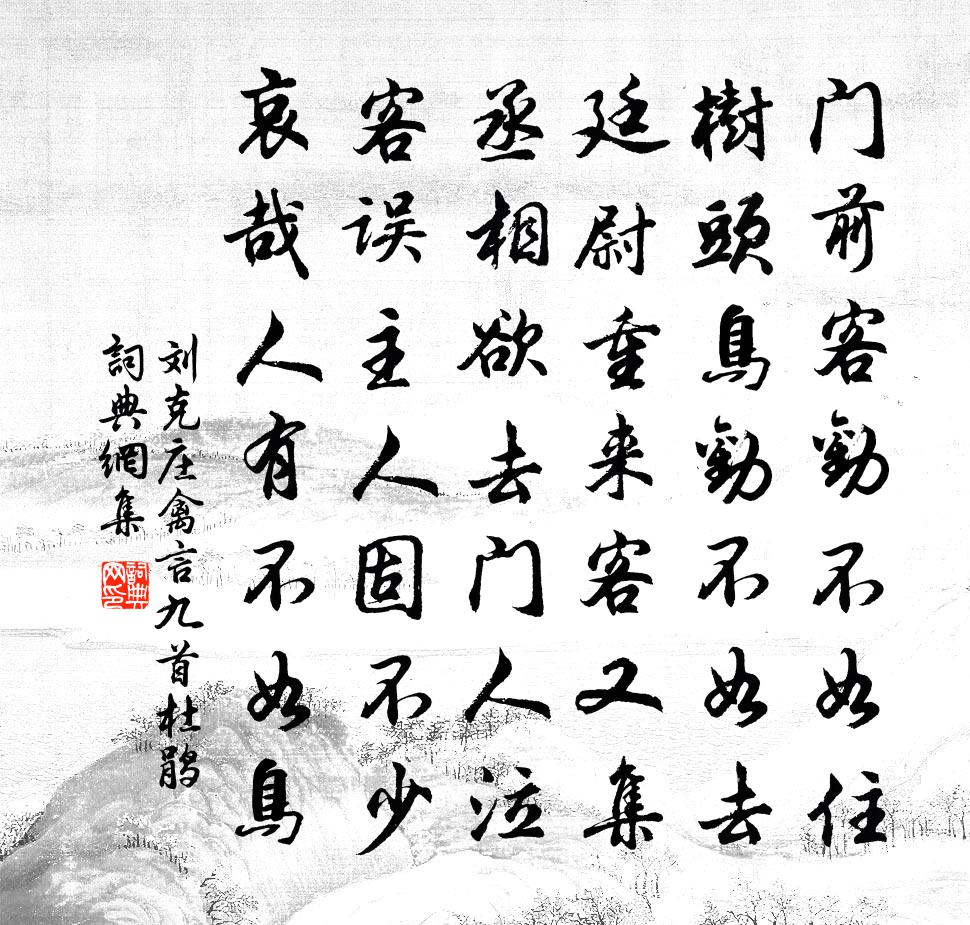 门前客勸不如住
樹頭鳥勸不如去
廷尉重来客又集
丞相欲去门人泣
客误主人固不少
哀哉人有不如鳥
刘克庄禽言九首杜鹃
詞典網集
詞典网印